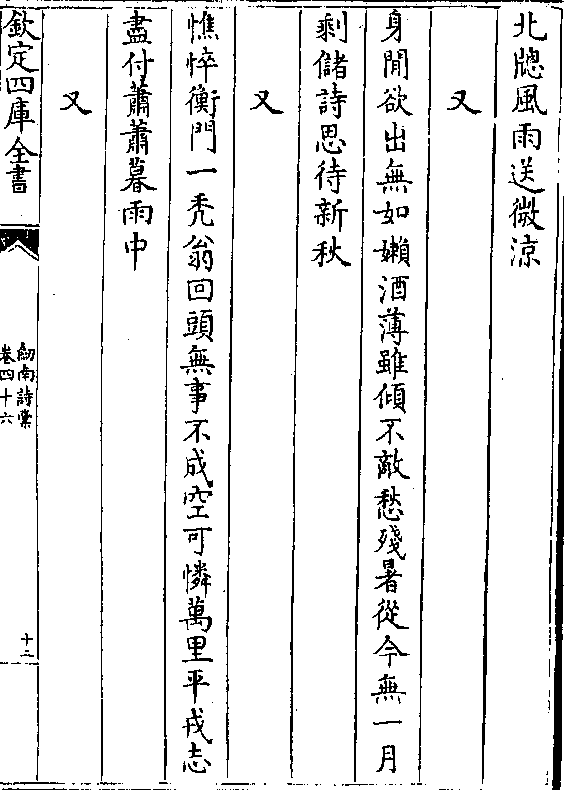 北牎風雨送微涼
又
身閒欲出無如嬾酒薄雖傾不敵愁殘暑從今無一月
剩儲詩思待新秋
又
憔悴衡門一秃翁回頭無事不成空可憐萬里平戎志
盡付蕭蕭暮雨中
又
欽定四庫全書
劒南詩藁
卷四十六
十二